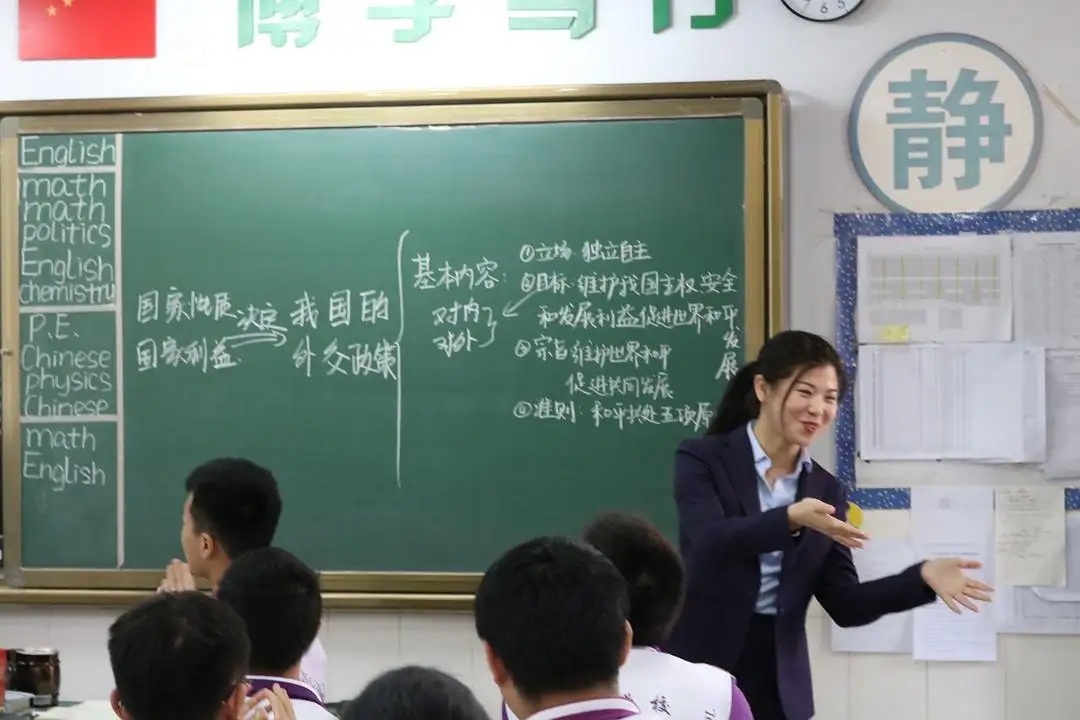 博学笃行
7 6 5
静
English
math
math
politics
English
chemistry
P.E.
Chinese
physics
Chinese
math
English
国家性质
国家利益
决定
我国的
外交政策
基本内容:
对内
对外
①立场 独立自主
②目标:维护我国主权 安全
和发展利益促进世界和平
发展
③宗旨:维护世界和平
促进共同发展
④准则:和平共处五项原
校